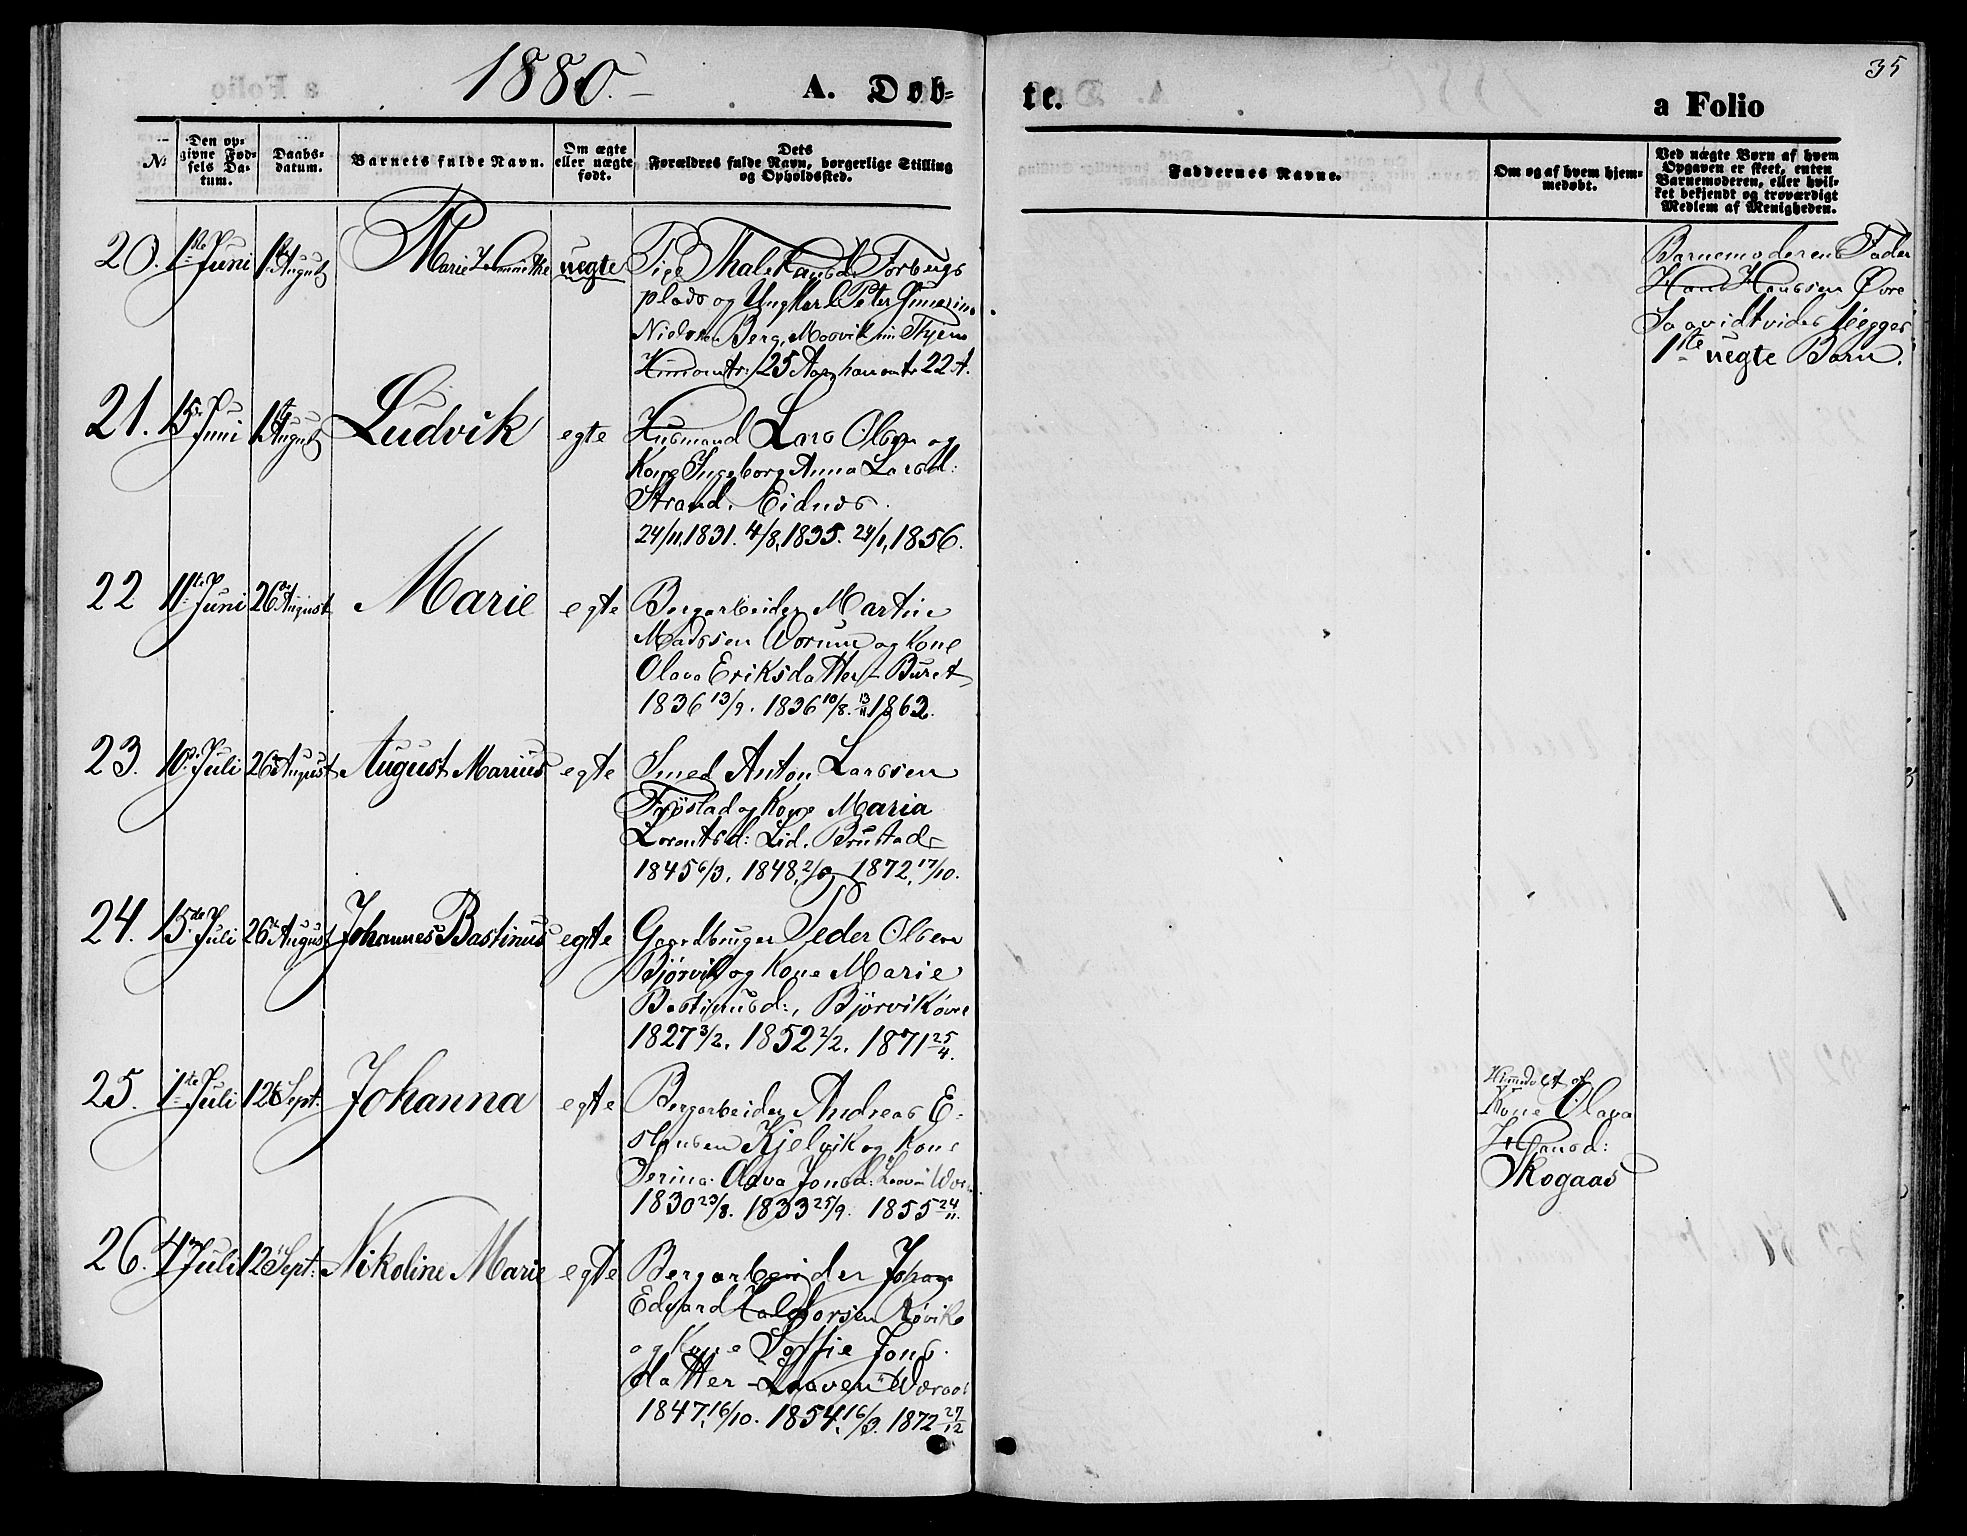 1880.
A. Døb-
te.
a Folio
35
No
Den op-
givne Fød-
sels Da-
tum.
Daabs-
datum.
Barnets fulde Navn.
Om ægte
eller uægte
født.
Dets
Forældres fulde Navn, borgerlige Stilling
og Opholdssted.
Faddernes Navne.
Om og af hvem hjem-
medøbt.
Ved uægte Børn af hvem
Opgaven er skeet, enten
Barnemoderen, eller hvil-
ket bekjendt og troværdigt
Medlem af Menigheden.
20. 1ste Juni 1ste August Marie uegte Pige
plads og Ungkarl Peter
Nielsen Berg,
25 Aar, han omtr 22 A.
Barnemoderens Fader
Hans Hanssen Øvre
1ste uegte Barn.
21. 15de Juni 1ste August Ludvik egte Husmand Lars Olsen og
Kone Ingeborg Anna Larsd:
Strand. Eidnes.
24/11, 1831. 4/8, 1835. 24/1, 1856.
22 11te Juni 26de August Marie egte Bergarbeider Martin
Madssen Vorum og Kone
Olava Eriksdatter - Buret
1836 13/9. 1836 10/8. 13/11 1862.
23. 10de Juli 26de August August Marius egte Smed Anton Larssen
Frøstad og Kone Maria
Lorntsd: Lid. Brustad
1845 6/3. 1848, 2/9 1872, 17/10.
24. 15de Juli 26de August Johannes Bastinus egte Gaardbruger Peder Olsen
Bjørvik og Kone Marie
Bastinusd:, Bjørvik øvre
1827 3/2. 1852 2/2. 1871 25/4.
25. 1ste Juli 12te Sept: Johanna egte Bergarbeider Andreas E-
Kjelvik og Kone
Serina Olava Jonsd:
1830 23/8. 1833 25/9. 1855 24/11.
Himdøbt af
Kone Olava
Skogaas
26. 4de Juli 12te Sept: Nikoline Marie egte Bergarbeider Johan
Edvard Haldorsen
og Kone Soffie Jons-
datter - Laaven
1847, 16/10. 1854, 16/9. 1872 27/12